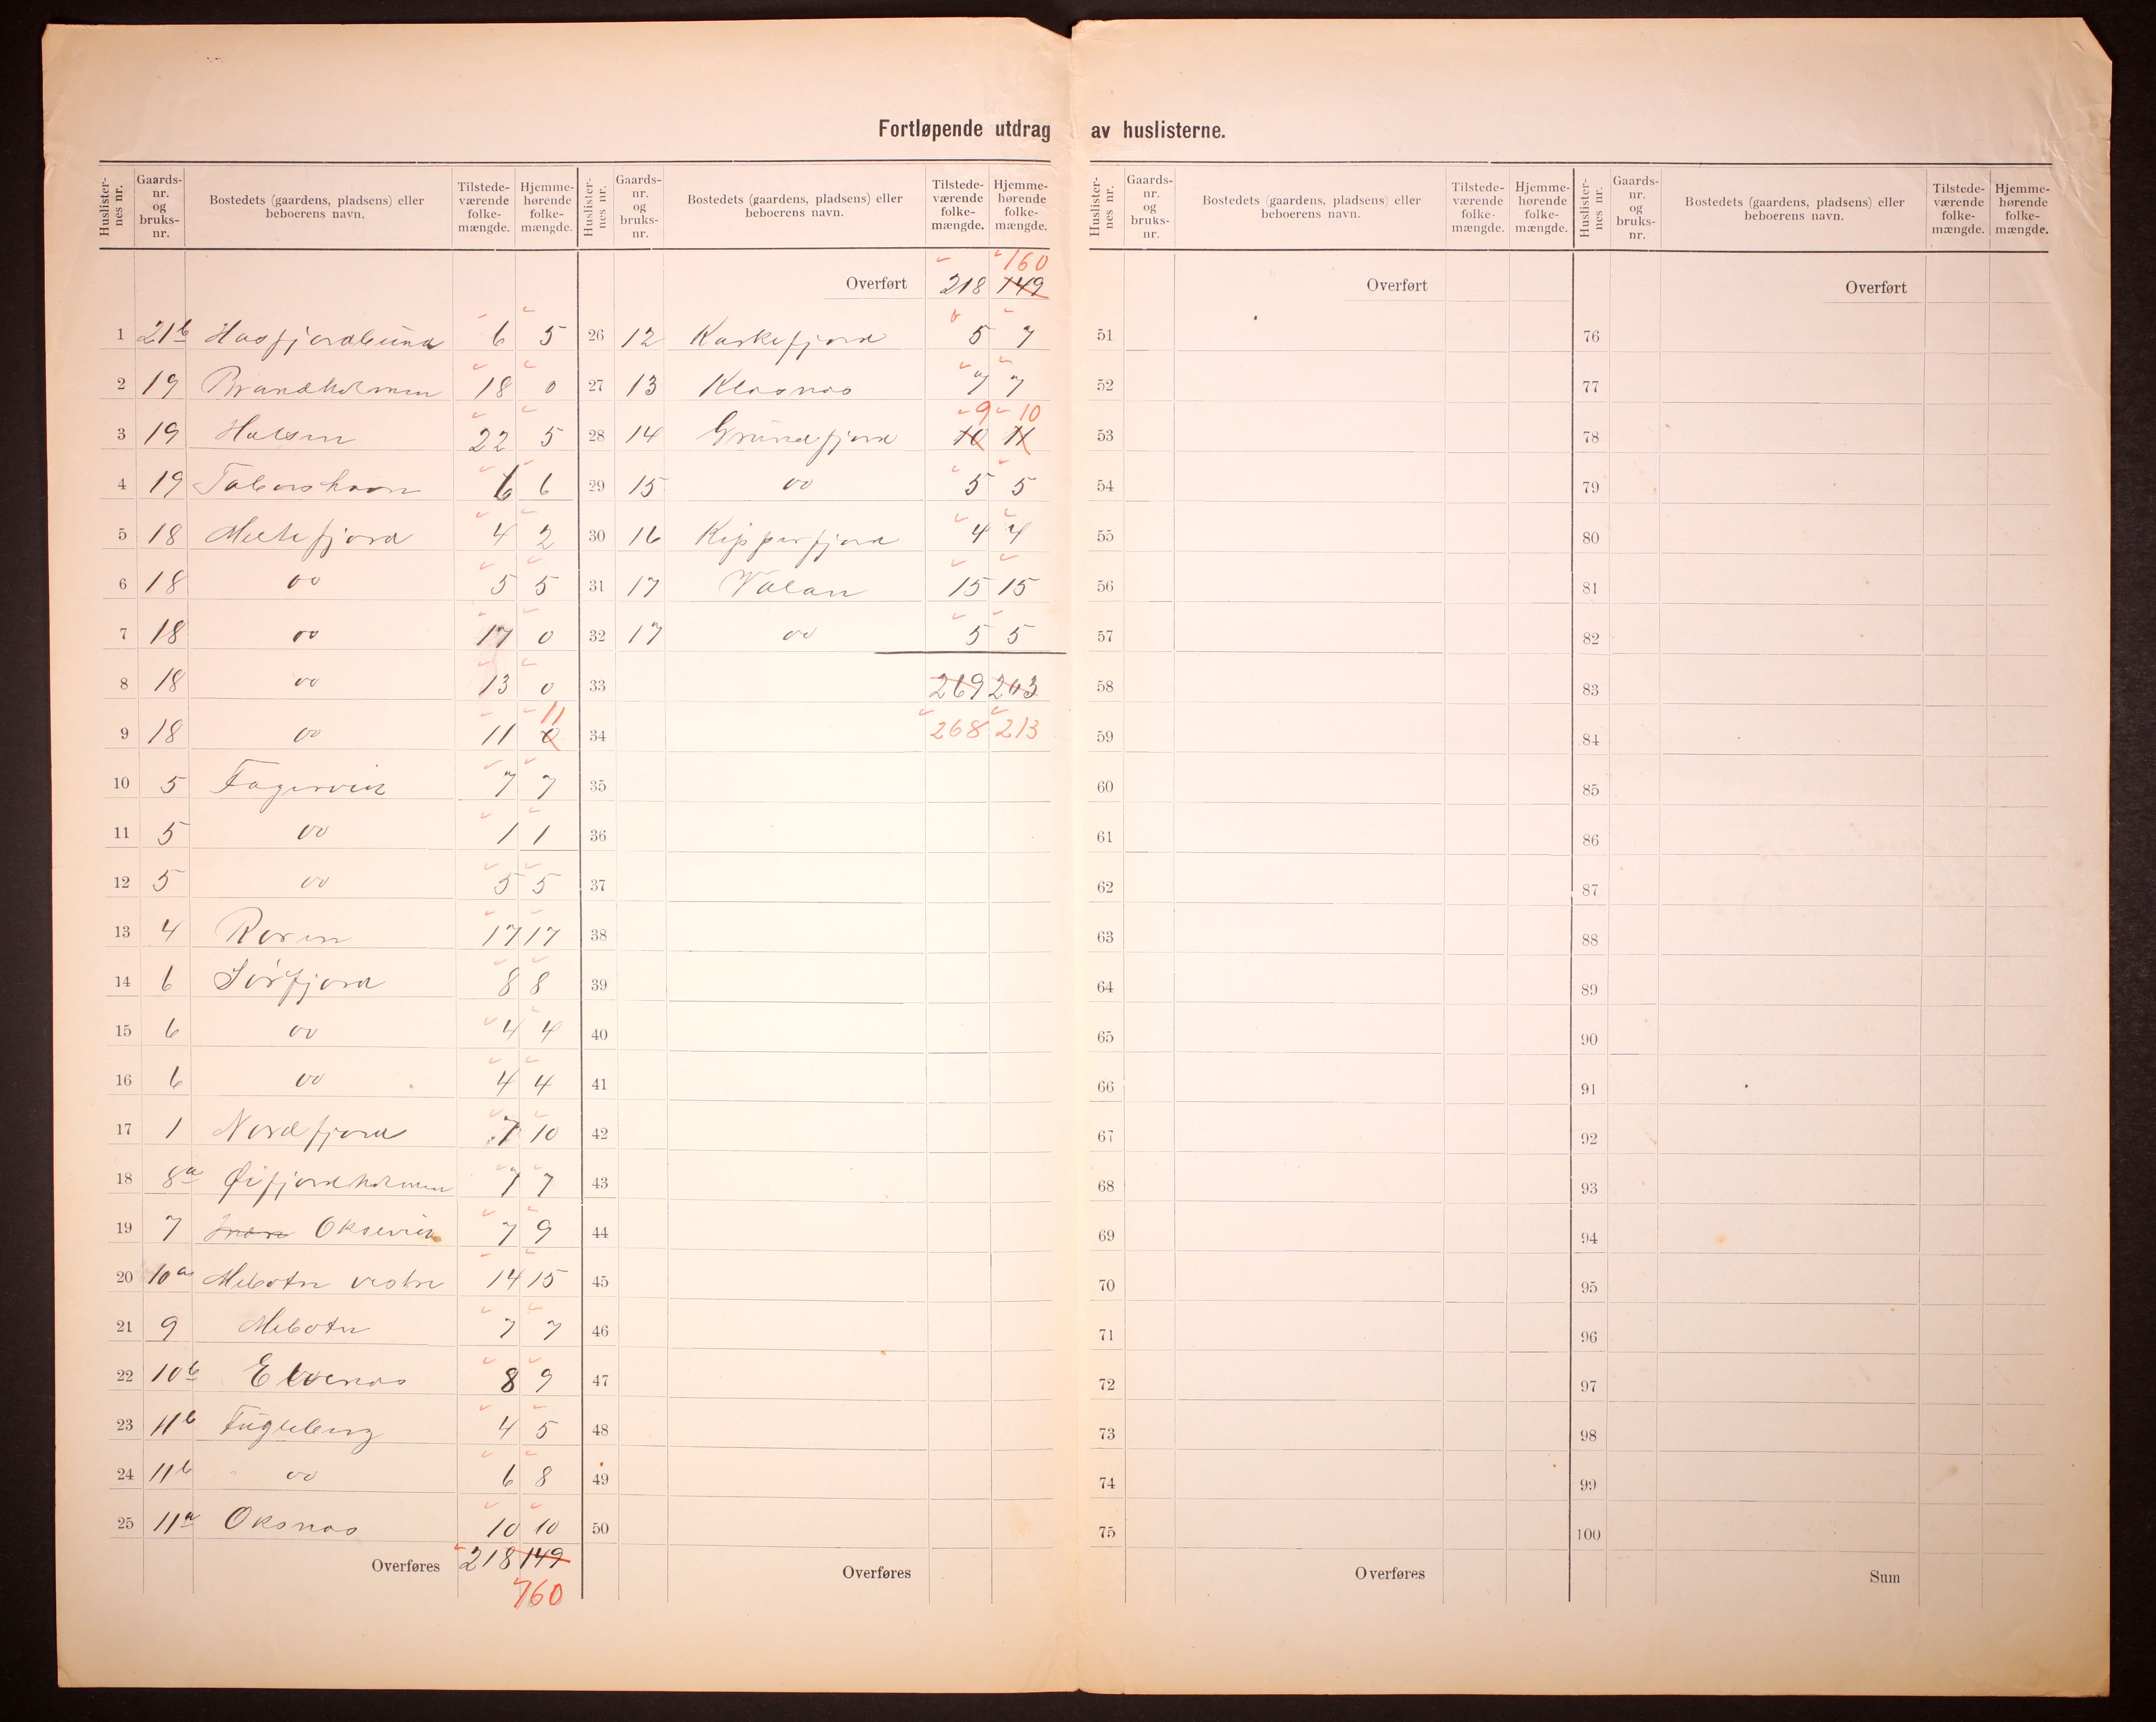 Fortløpende utdrag av huslisterne.
Huslisternes nr. Gaards-nr. og bruks-nr. Bostedets (gaardens, pladsens) eller beboerens navn. Tilstede-værende folke-mængde. Hjemme-hørende folke-mængde.
1 21b Hasfjordbund 6 5
2 19 Brandholmen 18 0
3 19 Halsen 22 5
4 19 6 6
5 18 Meltefjord 4 2
6 18 do 5 5
7 18 do 17 0
8 18 do 13 0
9 18 do 11 0 11
10 5 Fagervik 7 7
11 5 do 1 1
12 5 do 5 5
13 4 17 17
14 6 Sörfjord 8 8
15 6 do 4 4
16 6 do 4 4
17 1 Nordfjord 7 10
18 8a Øifjordholmen 7 7
19 7 Oksevik 7 9
20 10a Mebotn vestre 14 15
21 9 Mebotn 7 7
22 10b Elvenas 8 9
23 11b Fugleberg 4 5
24 11b do 6 8
25 11a Oksnas 10 10
Overføres 218 149
160
Huslisternes nr. Gaards-nr. og bruks-nr. Bostedets (gaardens, pladsens) eller beboerens navn. Tilstede-værende folke-mængde. Hjemme-hørende folke-mængde.
160
Overført 218 149
26 12 Kaskefjord 5 7
27 13 Klasnas 7 7
9 10
28 14 Grundfjord 10 11
29 15 do 5 5
30 16 Kipperfjord 4 4
31 17 Valan 15 15
32 17 do 5 5
33 269 203
34 268 213
35
36
37
38
39
40
41
42
43
44
45
46
47
48
49
50
Overføres
Huslisternes nr. Gaards-nr. og bruks-nr. Bostedets (gaardens, pladsens) eller beboerens navn. Tilstede-værende folke-mængde. Hjemme-hørende folke-mængde.
Overført
51
52
53
54
55
56
57
58
59
60
61
62
63
64
65
66
67
68
69
70
71
72
73
74
75
Overføres
Huslisternes nr. Gaards-nr. og bruks-nr. Bostedets (gaardens, pladsens) eller beboerens navn. Tilstede-værende folke-mængde. Hjemme-hørende folke-mængde.
Overført
76
77
78
79
80
81
82
83
84
85
86
87
88
89
90
91
92
93
94
95
96
97
98
99
100
Sum